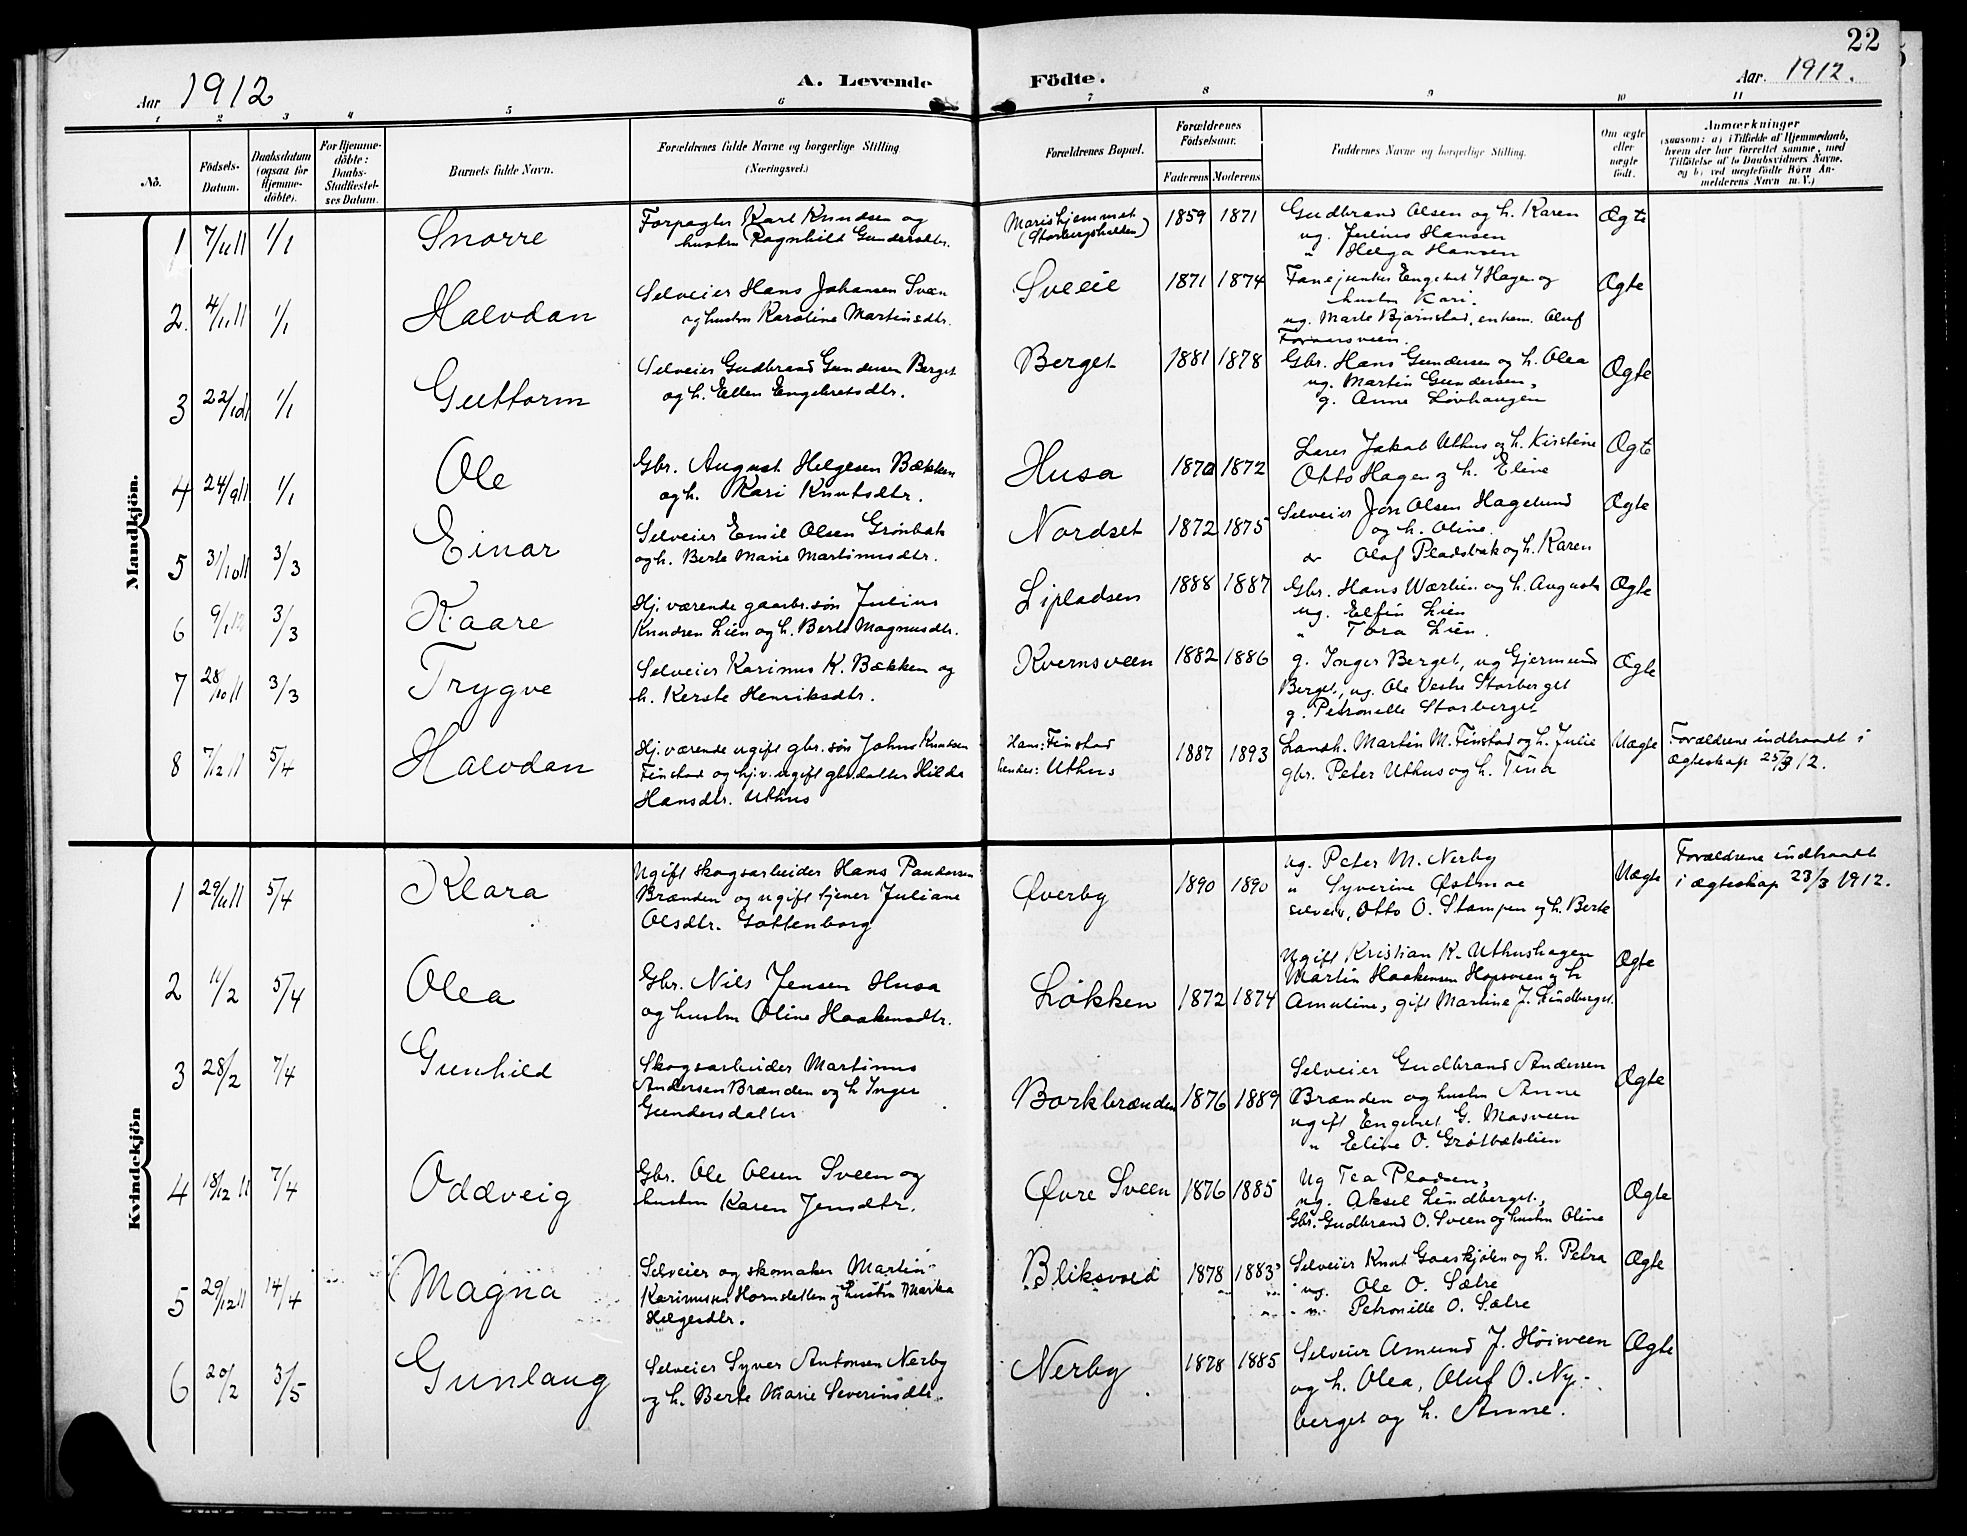 22
Aar 1912
A. Levende
Födte.
Aar. 1912.
1 2 3 4 5 6 7 8 9 10 11
No.
Födsels-
Datum.
Daabsdatum
(ogsaa for
Hjemme-
döbte).
For Hjemme-
döbte:
Daabs-
Stadfæstel-
ses Datum.
Barnets fulde Navn.
Forældrenes fulde Navne og borgerlige Stilling
(Næringsvei.)
Forældrenes Bopæl.
Forældrenes
Födselsaar.
Faderens Moderens
Faddernes Navne og borgerlige Stilling.
Om ægte
eller
uægte
født.
Anmærkninger
(saasom: a) i Tilfælde af Hjemmedaab,
hvem der har forrettet samme, med
Tilföielse af to Daabsvidners Navne,
og b) ved uægtefödte Börn An-
melderens Navn m. V.)
Mandkjön.
1 7/11 11 1/1 Snorre
Forpagter Karl Knudsen og
hustru Ragnhild Gundersdtr.
(Storbergshalden)
1859 1871
Gudbrand Olsen og h. Karen
ug. Julius Hansen
" Helga Hansen
Ægte
2. 4/11 11 1/1 Halvdan
Selveier Hans Johansen Sveen
og hustru Karoline Martinsdtr.
Sveeie 1871 1874
Fanejunker Engebret Hagen og
hustru Kari.
ug. Marte Bjørnstad, enkem. Oluf
Ægte
3 22/10 11 1/1 Guttorm
Selveier Gudbrand Gundersen Berget
og h. Ellen Engebretsdtr.
Berget 1881 1878
Gbr. Hans Gundersen og h. Olea
ug. Martin Gundersen,
g. Anne Løvhaugen
Ægte
4 24/9 11 1/1 Ole
Gbr. August Helgesen Bækken
og h. Kari Knutsdtr.
Husa 1870 1872
Lærer Jakob Uthus og h. Kirstine
Otto Hagen og h. Eline
Ægte
5 31/10 11 3/3 Einar
Selveier Emil Olsen Grønbæk
og h. Berte Marie Martinusdtr.
Nordset 1872 1875
Selveier Jon Olsen Hagelund
og h. Oline.
Olaf Pladsbak og h. Karen
Ægte
6 9/1 12 3/3 Kaare
Hj. værende gaarbr.søn Julius
Knudsen Lien og h. Berte Magnusdtr.
Lipladsen 1888 1887
Gbr. Hans Wærlien og h. Augusta
ug. Elfin Lien
" Tora Lien.
Ægte
7 28/10 11 3/3 Trygve
Selveier Karinus K. Bækken og
h. Kerste Henriksdtr.
Kvernsveen 1882 1886
g. Inger Berget, ug Gjermund
Berget, ug. Ole Vestre Storberget
g. Petronelle Storberget
Ægte
8 7/12 11 5/4 Halvdan
Hj. værende ugift gbr. søn Johns Knutsen
Finstad og hj.v. ugift gbr.datter Hilda
Hansdtr. Uthus
Hans: Finstad
hendes: Uthus
1887 1893
Landh. Martin M. Finstad og h. Julie
gbr. Peter Uthus og h. Tina
Uægte
Forældrene indtraadt i
ægteskap 25/3 12.
Kvindekjön
1 29/11 11 5/4 Klara
Ugift skogsarbeider Hans Pandersen
Brænden og ugift tjener Juliane
Olsdtr. Gottenborg
Øverby 1890 1890
ug. Peter M. Nerby
" Syverine Østmoe
selveier, Otto O. Stampen og h. Berte
Uægte
Forældrene indtraadt
i ægteskap 23/3 1912.
2 11/2 5/4 Olea
Gbr. Nils Jensen Husa
og hustru Oline Haakensdtr.
Løkken 1872 1874
Ugift Kristian K. Uthushagen
Martin Haakensen Hopsveen og h
Amaline, gift Martine J. Lindberget.
Ægte
3 28/2 7/4 Gunhild
Skogsarbeider Martinus
Andersen Brænden og h Inger
Gundersdatter
Borkbrænden 1876 1889
Selveier Gudbrand Andersen
Brænden og hustru Anne
ugift Engebret G. Masveen
" Eline O. Grøtbæklien
Ægte
4 18/12 11 7/4 Oddveig
Gbr. Ole Olsen Sveen og
hustru Karen Jensdtr.
Øvre Sveen 1876 1885
Ug Tea Pladsen,
ug. Aksel Lindberget,
Gbr. Gudbrand O. Sveen og hustru Oline
Ægte
5 29/12 11 14/4 Magna
Selveier og skomaker Martin
Karinusen Hornsletten og hustru Marka
Helgesdtr.
Bliksvold 1878 1883
Selveier Knut Gaaskjølen og h. Petra
ug. Ole O. Sætre
" Petronille O. Sætre
Ægte
6 20/2 3/5 Gunlaug
Selveier Syver Antonsen Nerby
og h. Berte Marie Severinsdtr.
Nerby 1878 1885
Selveier Amund J. Høisveen
og h. Olea, Oluf O. Ny-
berget og h. Anne.
Ægte